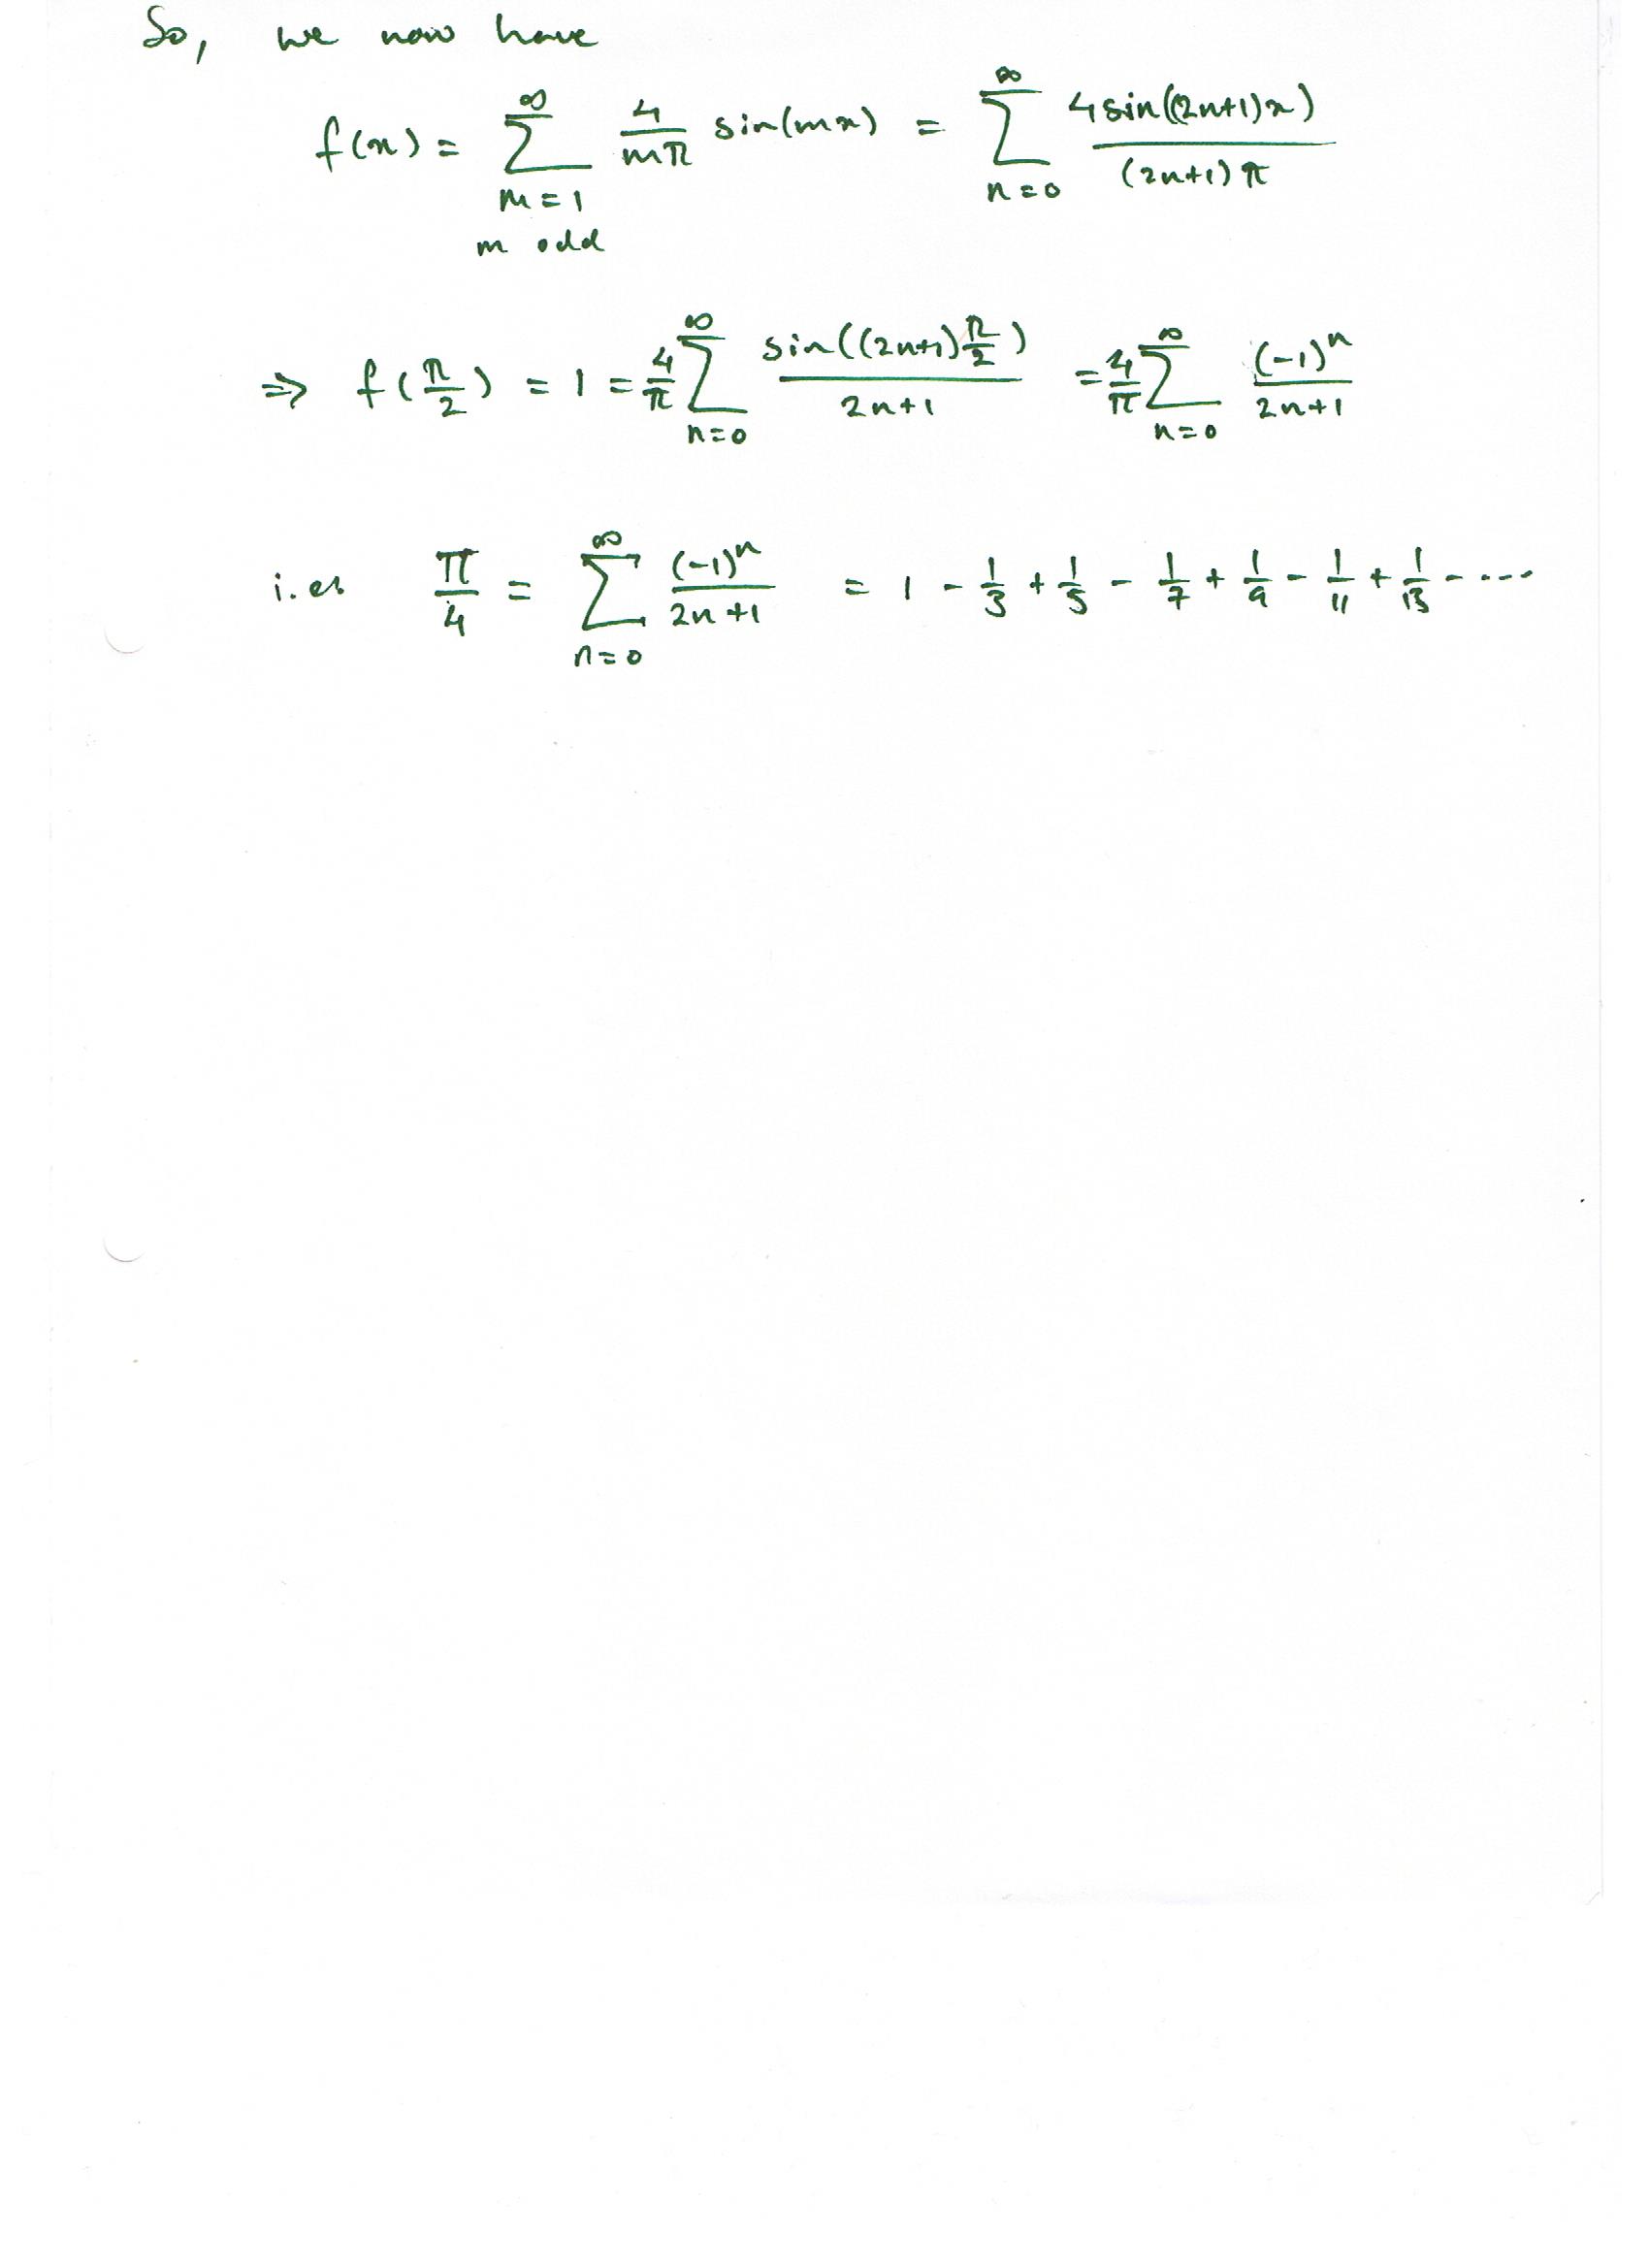 So, we now have
f(x) = ∑_{m=1, m odd}^{∞} \frac{4}{mπ} sin(mx) = ∑_{n=0}^{∞} \frac{4 sin((2n+1)x)}{(2n+1)π}
⇒ f(\frac{π}{2}) = 1 = \frac{4}{π} ∑_{n=0}^{∞} \frac{sin((2n+1)\frac{π}{2})}{2n+1} = \frac{4}{π} ∑_{n=0}^{∞} \frac{(-1)^n}{2n+1}
i.e. \frac{π}{4} = ∑_{n=0}^{∞} \frac{(-1)^n}{2n+1} = 1 - \frac{1}{3} + \frac{1}{5} - \frac{1}{7} + \frac{1}{9} - \frac{1}{11} + \frac{1}{13} - ....